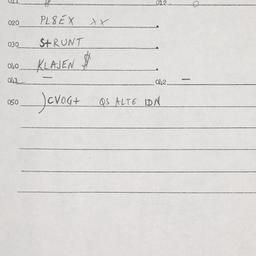 020 PL8EX XX
030 S+RUNT
040 KLAJEN $
041 — 042 —
050 )CVOG+ QS ALTE IDN